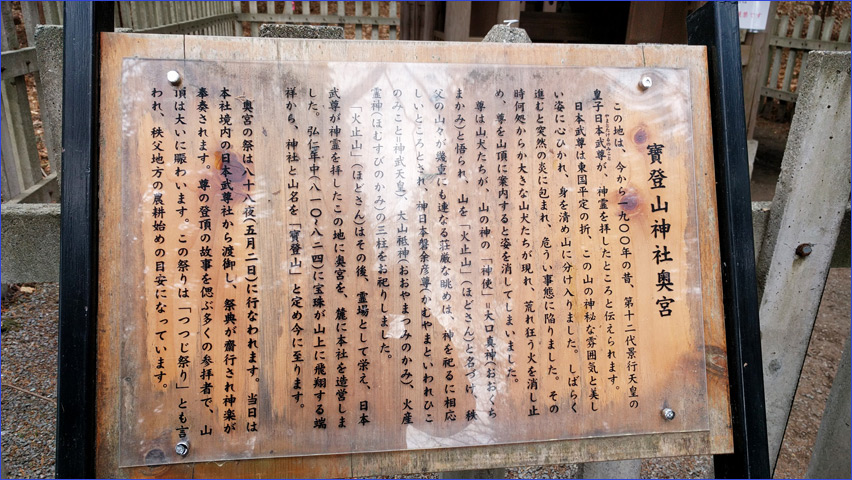 寶登山神社奥宮
この地は、今から一九〇〇年の昔、第十二代景行天皇の
皇子日本武尊が、神霊を拝したところと伝えられます。
日本武尊は東国平定の折、この山の神秘な雰囲気と美し
い姿に心ひかれ、身を清め山に分け入りました。しばらく
進むと突然の炎に包まれ、危うい事態に陥りました。その
時何処からか大きな山犬たちが現れ、荒れ狂う火を消し止
め、尊を山頂に案内すると姿を消してしまいました。
尊は山犬たちが、山の神の「神使」=大口真神(おおくち
まかみ)と悟られ、山を「火止山」(ほどさん)と名づけ、秩
父の山々が幾重にも連なる荘厳な眺めは、神を祀るに相応
しいところとされ、神日本磐余彦尊(かむやまといわれひこ
のみこと=神武天皇)、大山祗神(おおやまつみのかみ)、火産
霊神(ほむすびのかみ)の三柱をお祀りしました。
「火止山」(ほどさん)はその後、霊場として栄え、日本
武尊が神霊を拝したこの地に奥宮を、麓に本社を造営しま
した。弘仁年中(八一〇〜八二四)に宝珠が山上に飛翔する端
祥から、神社と山名を「寶登山」と定め今に至ります。
奥宮の祭は八十八夜(五月二日)に行なわれます。当日は
本社境内の日本武尊社から渡御し、祭典が齋行され神楽が
奉奏されます。尊の登頂の故事を偲ぶ多くの参拝者で、山
頂は大いに賑わいます。この祭りは「つつじ祭り」とも言
われ、秩父地方の農耕始めの目安になっています。